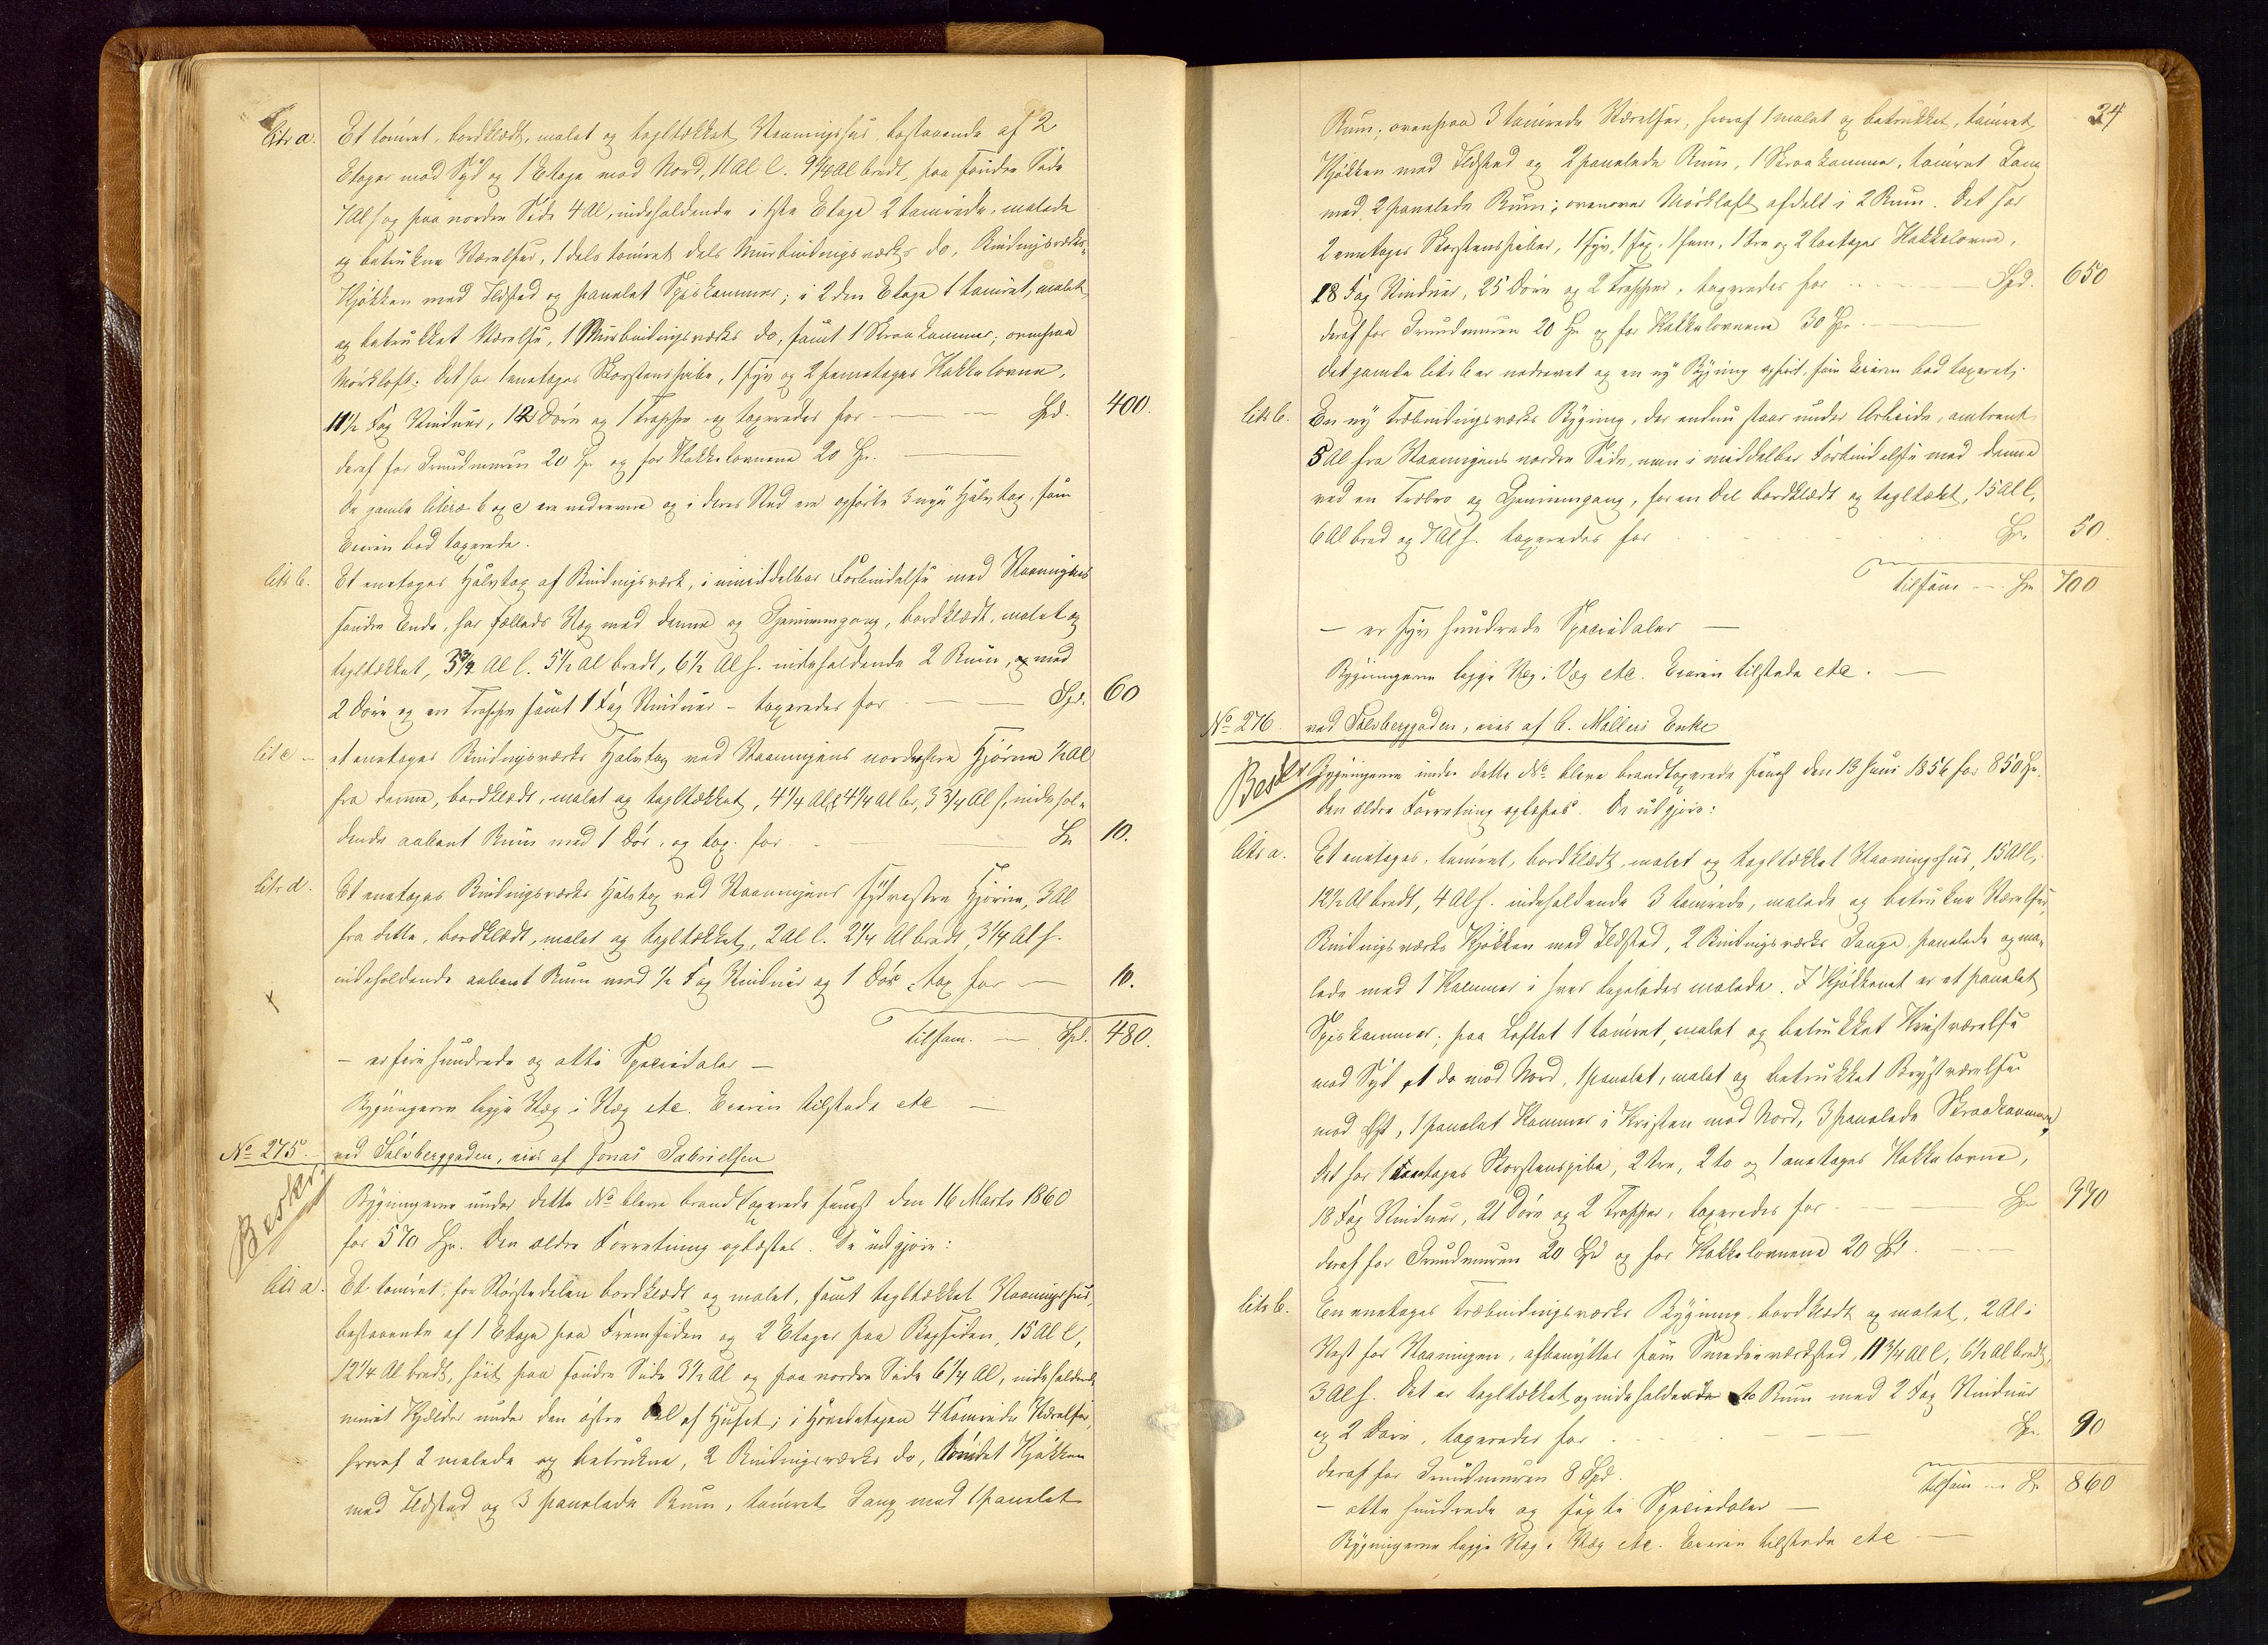 Litr a. Et tømret, bordklædt, malet og tagltækket Vaaningshus, bestaaende af 2
Etager mod Syd og 1 Etage mod Nord, 11 Al l. 9 1/4 Al bredt, paa søndre Side
7 Al h og paa nordre Side 4 Al, indeholdende i 1ste Etage 2 tømrede, malede
og betrukne Værelser, 1 dels tømret dels Murbindingsværks do, Bindingsværks-
Kjøkken med Ildsted og panelet Spiskammer; i 2den Etage 1 tømret, malet
og betrukket Værelse, 1 Murbindingsværks do, samt 1 Skraakammer; ovenpaa
Mørkloft. Det har 1 enetages Skorstenspibe, 1 syv og 2 femetages Kakkelovne,
11 1/2 Fag Vinduer, 12 Døre og 1 Trappe og taxeredes for Spd. 400.
deraf for Grundmuren 20 Sp og for Kakkelovnene 20 Sp.
De gamle Litera b og c ere nedrevne og i deres Sted ere opførte 3 nye Halvtag, som
Eieren bad taxerede.
Litr b. Et enetages Halvtag af Bindingsværk, i umiddelbar Forbindelse med Vaaningens
søndre Ende, har fælleds Væg med denne og Gjennemgang, bordklædt, malet og
tagltækket, Al l. 5 1/2 Al bredt, 6 1/2 Al h. indeholdende 2 Rum, og med
2 Døre og en Trappe samt 1 Fag Vinduer – taxeredes for Spd. 60
Litr c – et enetages Bindingsværks Halvtag ved Vaaningens nordvestre Hjørne 1/2 Al
fra denne, bordklædt, malet og tagltækket, 4 1/4 Al l 4 1/4 Al br, 3 3/4 Al h, indehol-
dende aabent Rum med 1 Dør, og tax. for Sp 10.
Litr d. Et enetages Bindingsværks Halvtag ved Vaaningens sydvestre Hjørne, 3 Al
fra dette, bordklædt, malet og tagltækket, 2 Al l. 2 1/4 Al bredt, 3 1/4 Al h.
indeholdende aabent Rum med 1/2 Fag Vinduer og 1 Dør, tax for 10.
tilsam. Spd. 480.
– er fire hundrede og otti Speciedaler –
Bygningerne ligge Væg i Væg etc. Eieren tilstede etc –
No 275. ved Sølvberggaden, eies af Jonas Gabrielsen
Beskr.
Bygningerne under dette No bleve brandtaxerede senest den 16 Marts 1860
for 570 Sp. Den ældre Forretning oplæstes. De udgjøre:
Litr a. Et tømret, for Størstedelen bordklædt og malet, samt tagltækket Vaaningshus,
bestaaende af 1 Etage paa Fremsiden og 2 Etager paa Bagsiden, 15 Al l,
12 1/4 Al bredt, høit paa søndre Side 3 1/2 Al og paa nordre Side 6 1/4 Al, indeholdende
muret Kjælder under den østre Del af Huset; i Hovedetagen 4 tømrede Værelser,
hvoraf 2 malede og betrukne, 2 Bindingsværks do, tømret Kjøkken
med Ildsted og 3 panelede Rum, tømret Gang med 1 panelet
24
Rum; ovenpaa 3 tømrede Værelser, hvoraf 1 malet og betrukket, tømret
Kjøkken med Ildsted og 2 panelede Rum, 1 Skraakammer, tømret Gang
med 2 panelede Rum; ovenover Mørkloft afdelt i 2 Rum. Det har
2 enetages Skorstenspiber, 1 syv, 1 sex, 1 fem, 1 tre og 2 toetages Kakkelovne,
18 Fag Vinduer, 25 Døre og 2 Trapper, taxeredes for Spd. 650
deraf for Grundmuren 20 Sp og for Kakkelovnene 30 Sp.
Det gamle Litr b er nedrevet og en ny Bygning opført, som Eieren bad taxeret,
Litr b. En ny Træbindingsværks Bygning, der endnu staar under Arbeide, omtrent
5 Al fra Vaaningens nordre Side, men i middelbar Forbindelse med denne
ved en Træbro og Gjennemgang, for en Del bordklædt og tagltækt, 15 Al l,
6 Al bred og 7 Al h. taxeredes for Sp. 50.
tilsam Sp 700
– er syv hundrede Speciedaler –
Bygningerne ligge Væg i Væg etc. Eieren tilstede etc. –
No 276. ved Sølvberggaden, eies af C. Møllers Enke
Beskr
Bygningerne under dette No bleve brandtaxerede senest den 13 Juni 1856 for 850 Sp.
Den ældre Forretning oplæstes. De udgjøre:
Litr a. Et enetages, tømret, bordklædt, malet og tagltækket Vaaningshus, 15 Al l,
12 1/2 Al bredt, 4 Al h. indeholdende 3 tømrede, malede og betrukne Værelser,
Bindingsværks Kjøkken med Ildsted, 2 Bindingsværks Gange, panelede og ma-
lede med 1 Kammer i hver ligeledes malede. I Kjøkkenet er et panelet
Spiskammer; paa Loftet 1 tømret, malet og betrukket Kvistværelse
mod Syd et do mod Nord, 1 panelet, malet og betrukket Brystværelse
mod Øst, 1 panelet Kammer i Kvisten mod Nord, 3 panelede Skraakammere,
Det har 1 enetages Skorstenspibe, 2 tre, 2 to og 1 enetages Kakkelovne,
18 Fag Vinduer, 21 Døre og 2 Trapper, taxeredes for Sp 770
deraf for Grundmuren 20 Spd og for Kakkelovnene 20 Spd.
Litr b. En enetages Træbindingsværks Bygning, bordklædt og malet, 2 Al i
Vest for Vaaningen, afbenyttes som Smedieværksted, 11 3/4 Al l, 6 1/2 Al bredt,
3 Al h. Det er tagltækket og indeholdende to Rum med 2 Fag Vinduer
og 2 Døre, taxeredes for Sp. 90
deraf for Grundmuren 8 Spd. tilsam Sp 860
– otte hundrede og sexti Speciedaler –
Bygningerne ligge Væg i Væg etc. Eieren tilstede etc